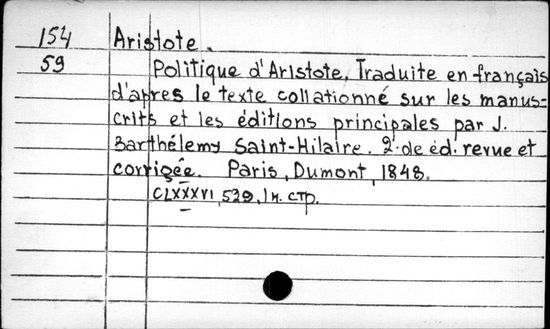 154 Aristote.
59 Politique d'Aristote, Traduite en français
d'apres le texte collationné sur les manus-
crits et les éditions principales par J.
Barthélemy Saint-Hilaire. 2-de éd. revue et
corrigée. Paris, Dumont, 1848.
CLXXXVI, 539, 1 н. стр.